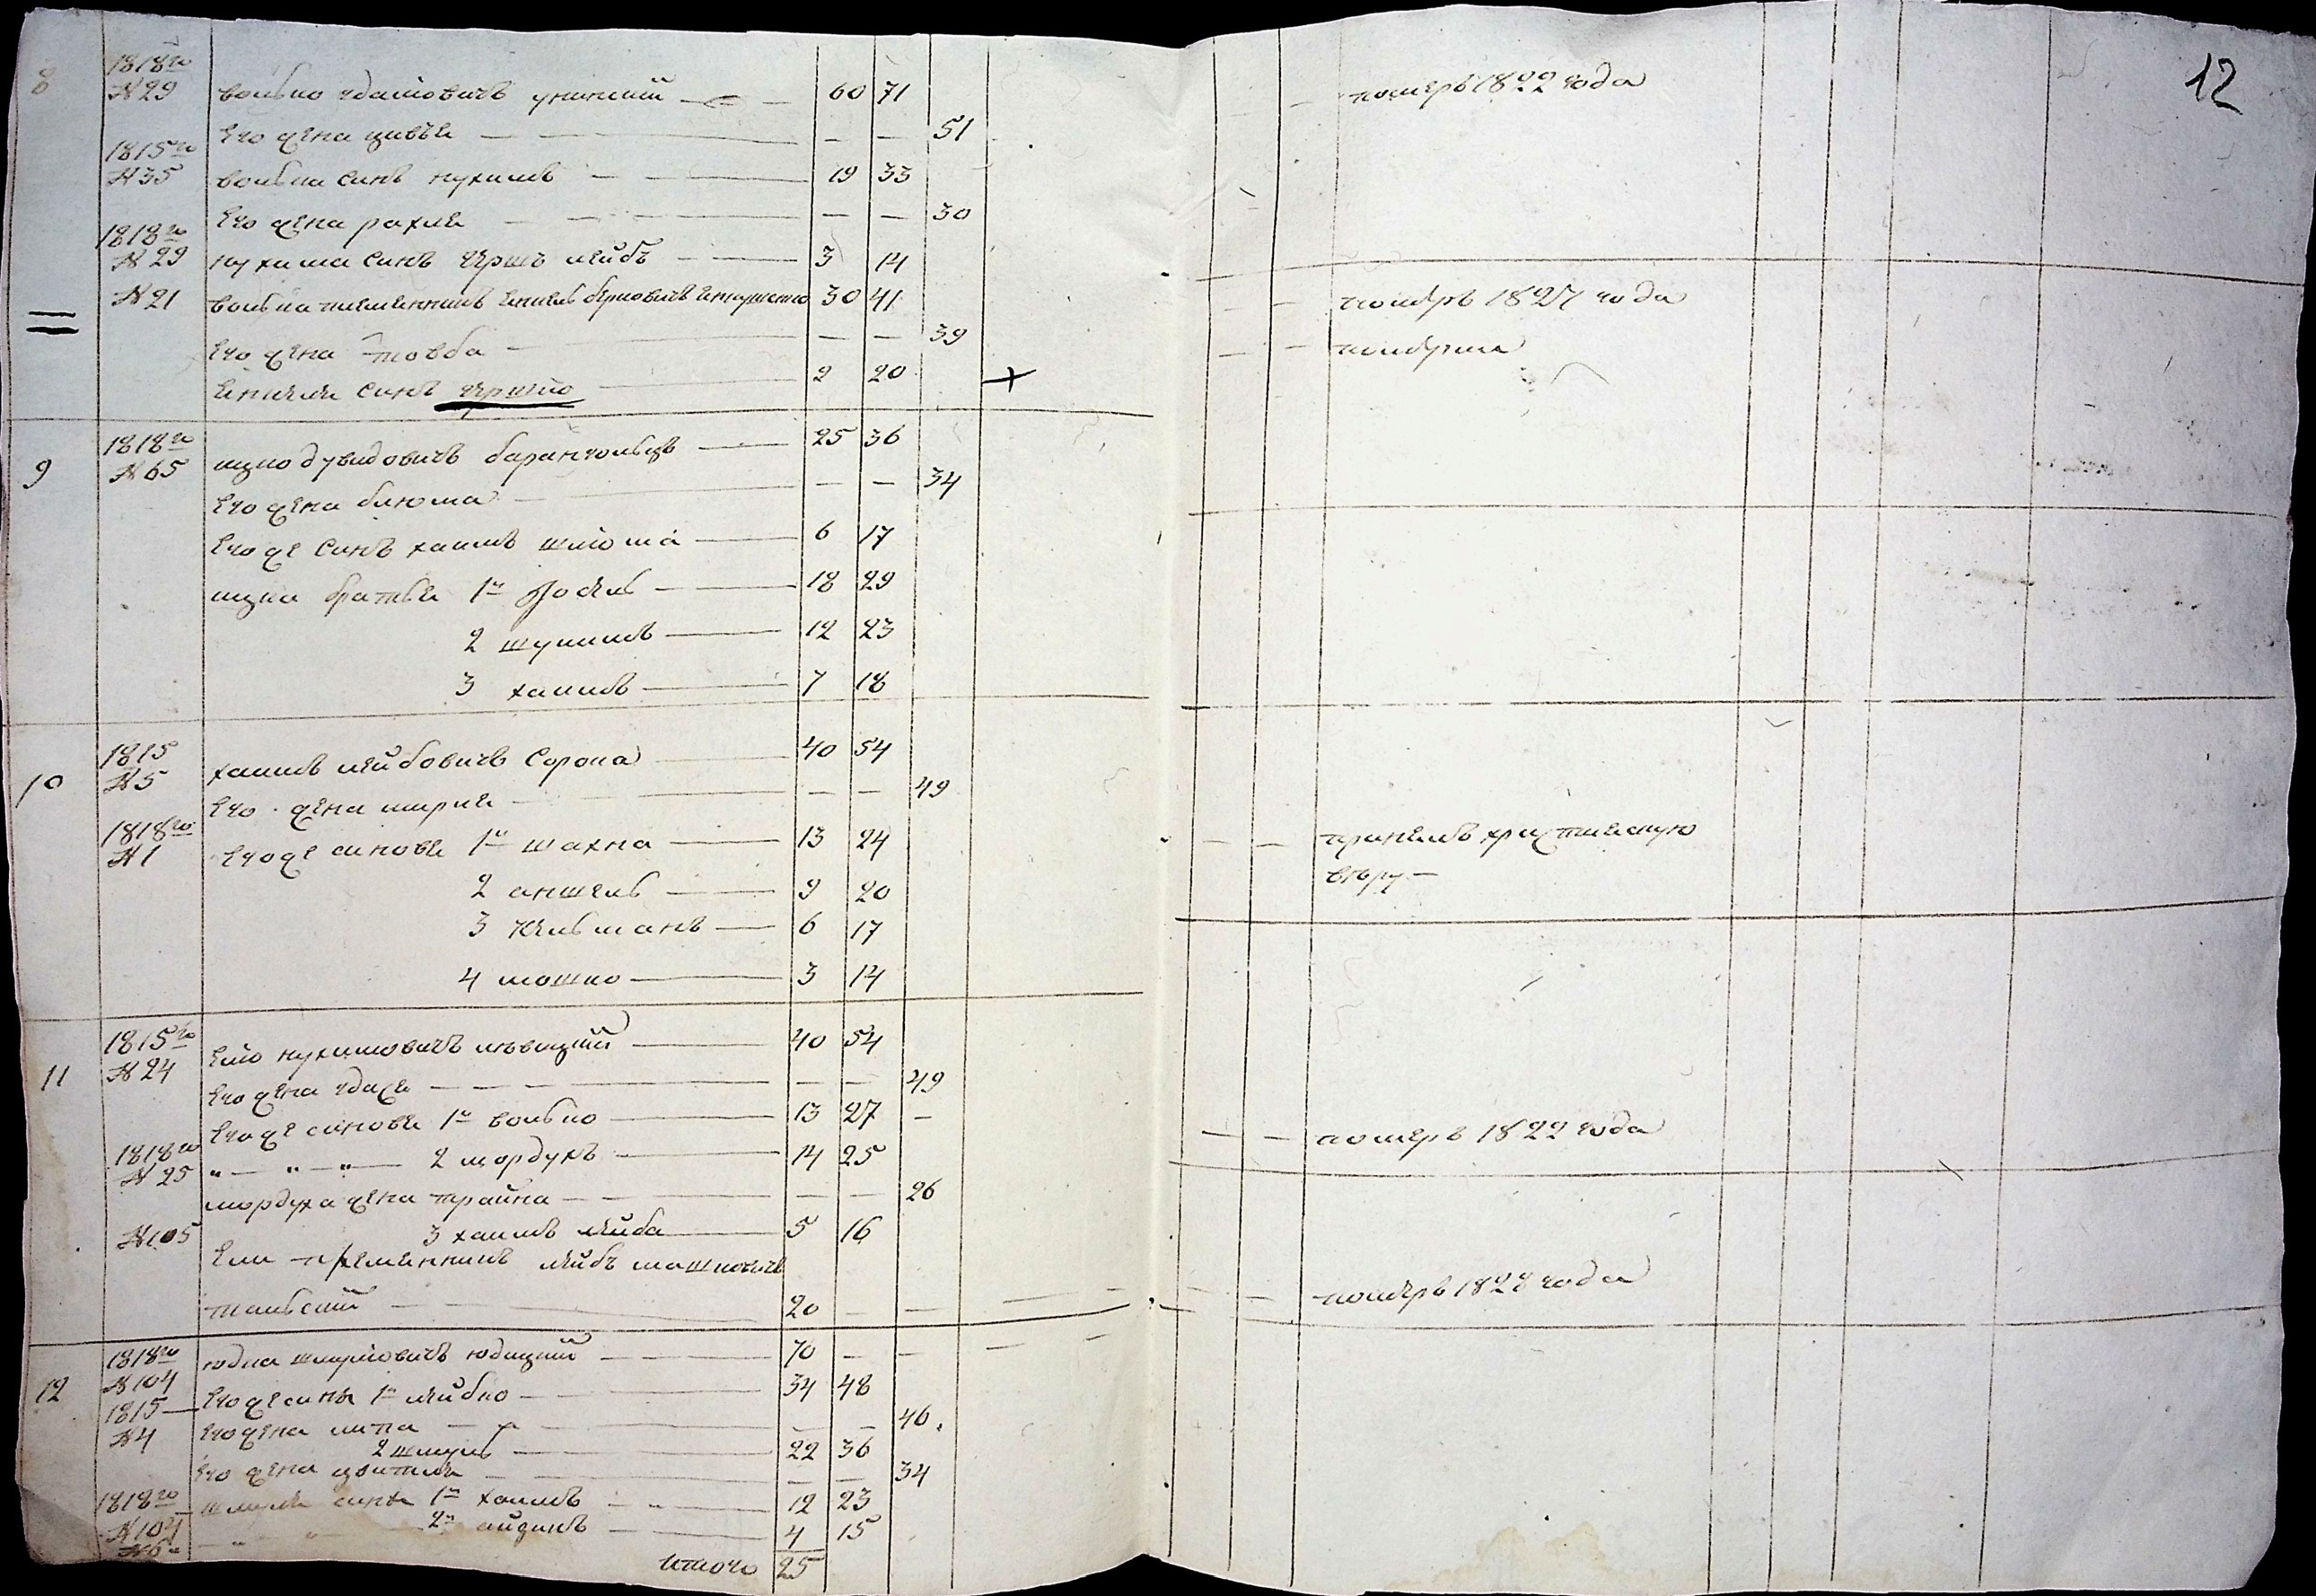 12
8 1818го №29 вольпо идашовичъ 60 71 померъ 1822 года
Его жена цивья — — 51
1815го №35 вольпа синъ нухимъ 19 33
Его жена рахля — — 30
1818го №29 нухима синъ гершъ лейбъ 3 14
№21 вольпа племенникъ 30 41 померъ 1827 года
Его жена товба — — 39 померла
синъ гершко 2 20 +
9 1818го №65 ицко дувидовичъ 25 36
Его жена блюма — — 34
Его же синъ хаимъ шлома 6 17
ицка братья 1й Иосель 18 29
2 шулимъ 12 23
3 хаимъ 7 18
10 1815 №5 хаимъ лейбовичъ Сорока 40 54
Его жена мирля — — 49
1818го №1 Его же синовья 1й шахна 13 24 принелъ христиескую
веру
2 аншель 9 20
3 Кельманъ 6 17
4 мошко 3 14
11 1815го №24 Ейло нухимовичъ 40 54
Его жена — — 49
Его же синовья 1й волько 13 27 — померъ 1822 года
1818го №25 „ — „ — „ — 2 мордухъ 14 25
мордуха жена трайна — — 26
№105 3 хаимъ лейба 5 16
племенникъ лейбъ мошковичъ
тальский 20 — — померъ 1828 года
12 1818го №104 юдка шмулёвичъ юдицкий 70 — —
1815 №4 Его же сины 1й лейбко 34 48
Его жена — — 46
2 шмуль 22 36
Его жена цвитля — — 34
1818го №104 шмуля сины 1й хаимъ 12 23
2й айзикъ 4 15
итого 25